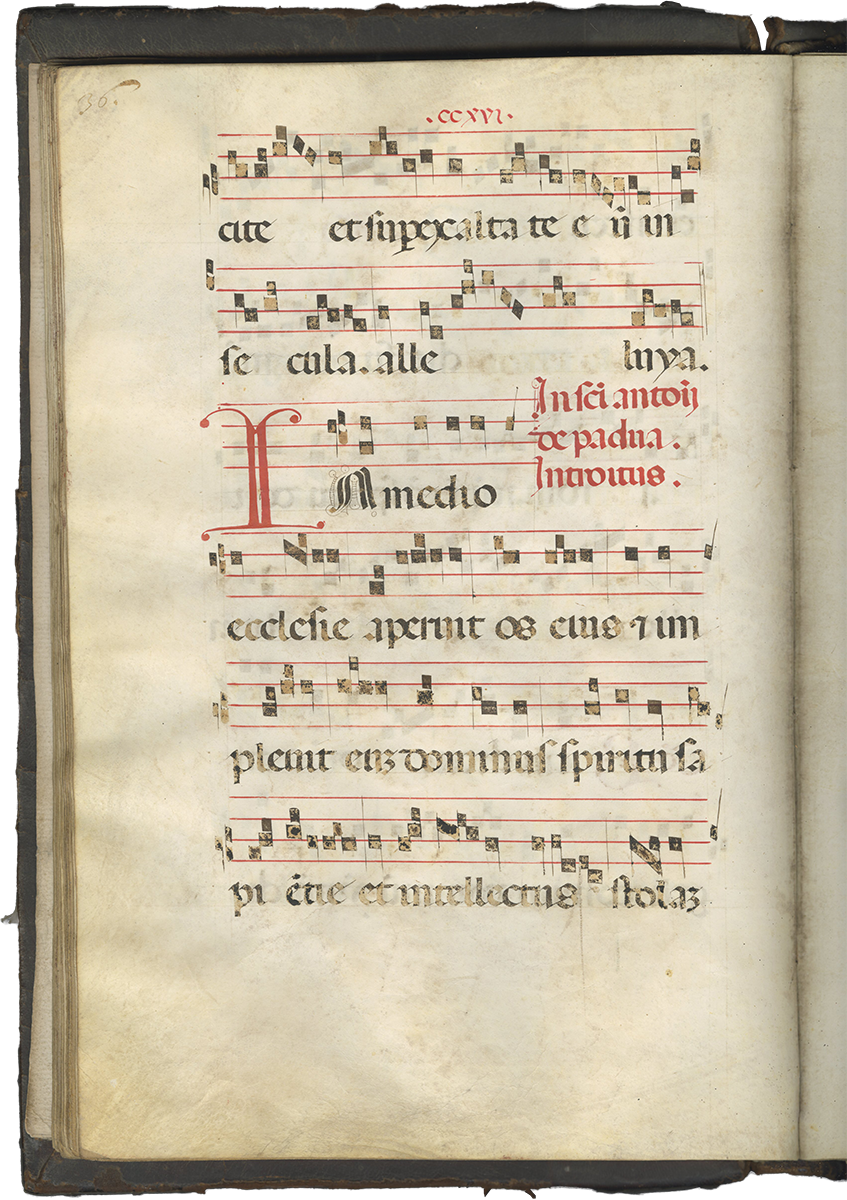 136.
.ccxvi.
cite et sup̱exalta te e ũ in
se cula. alle luya.
In sc̃i antoñ
de padua.
Introitus.
IN medio
ecclesie aperuit os eius ⁊ im
pleuit euꝫ dominus spiritu sa
pi ẽtie et intellectus stolaꝫ